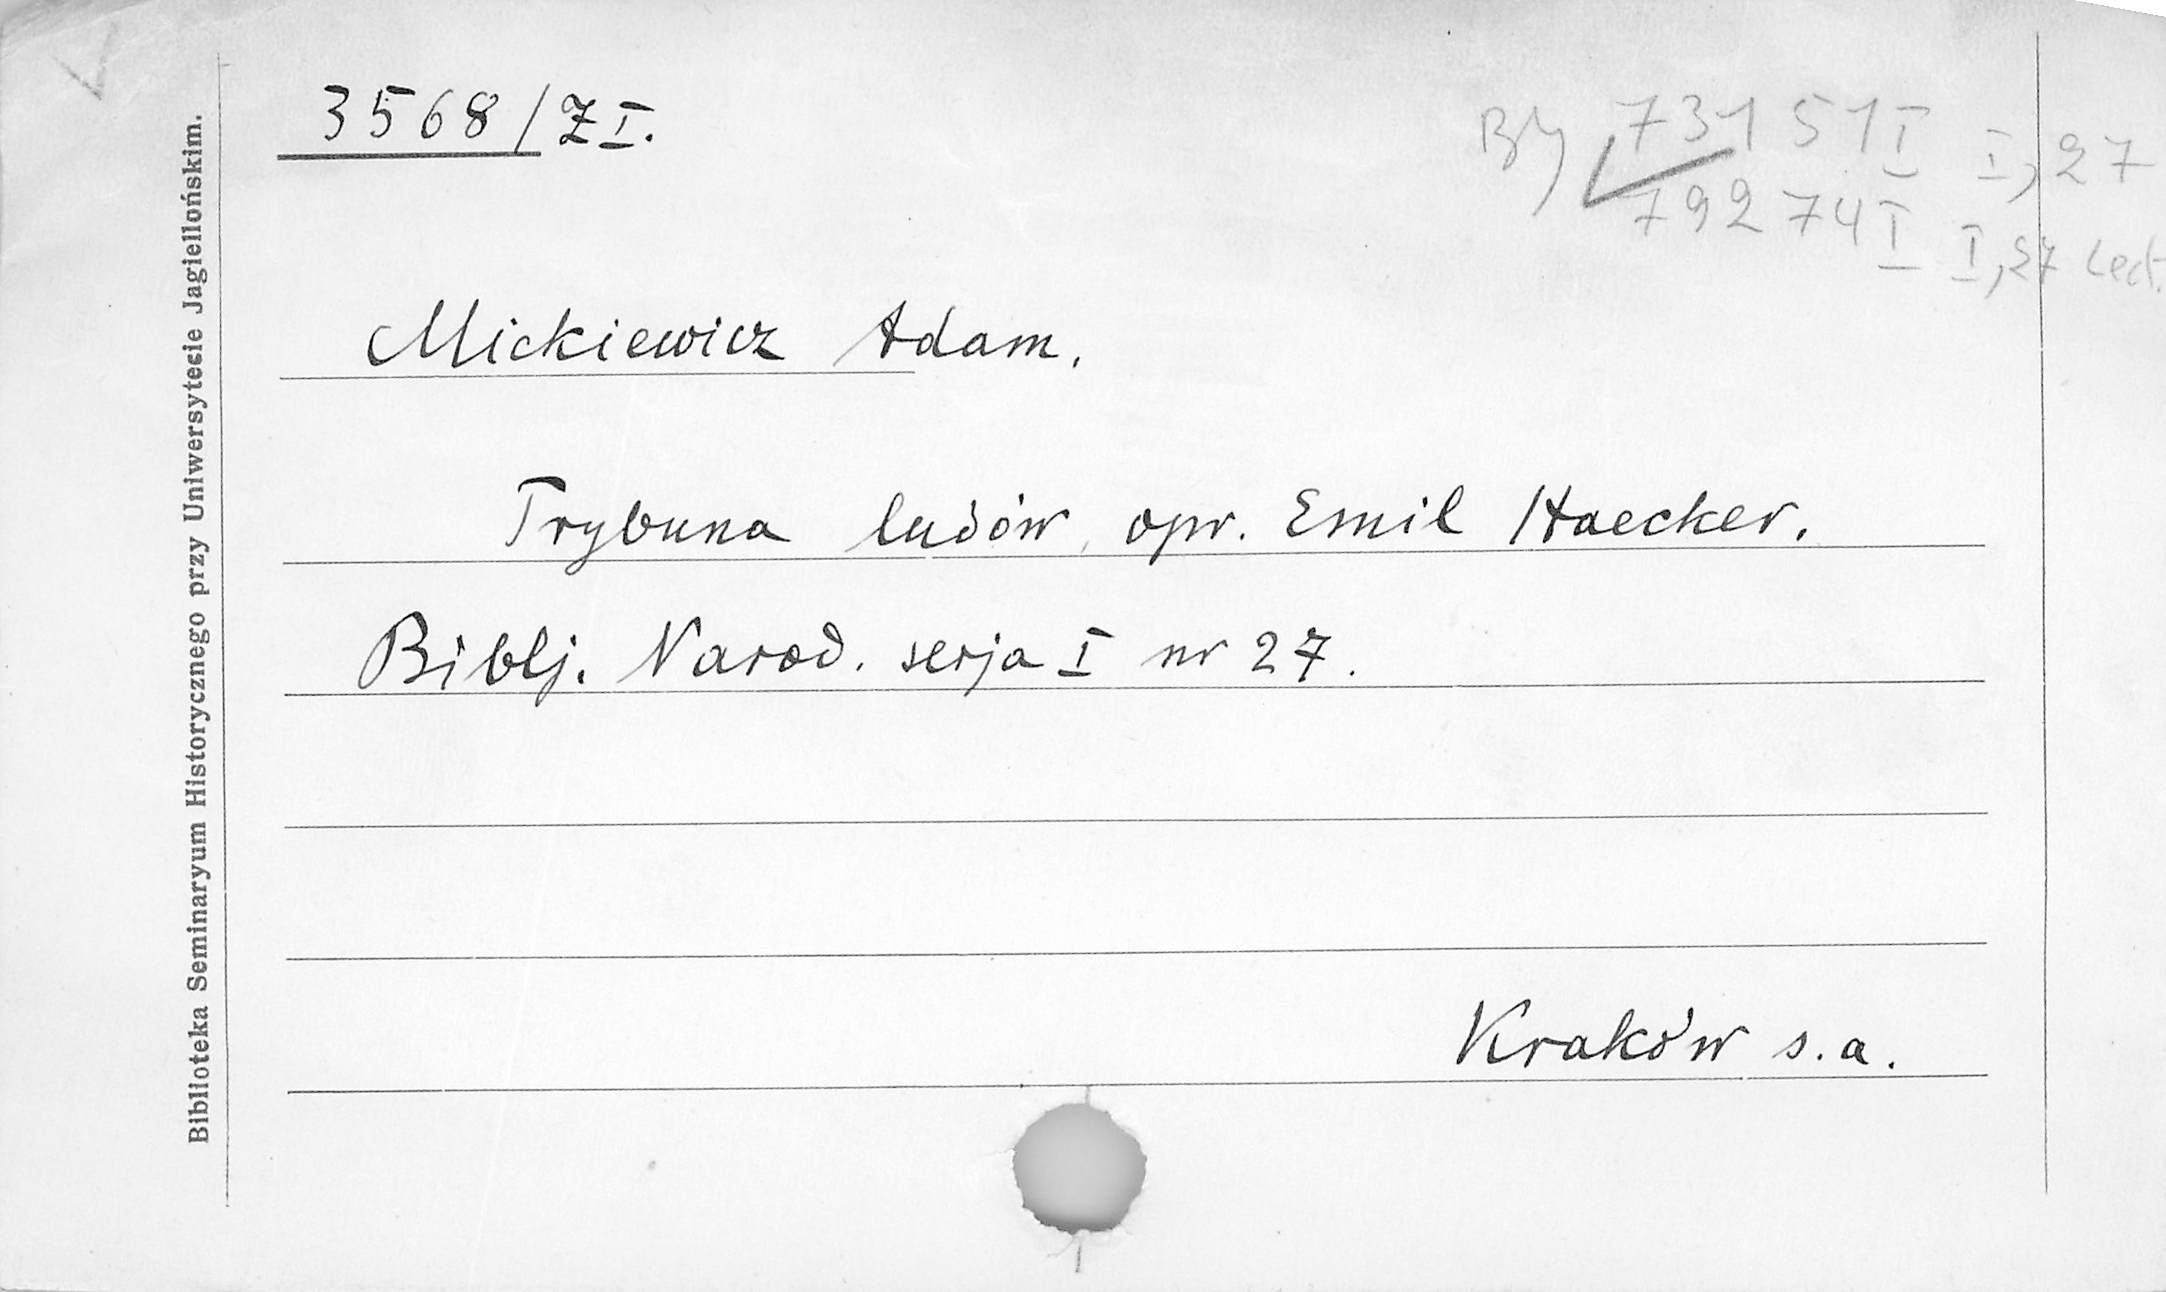 3568/ZI.
BJ 73151 I I, 27
79274 I I, 27 Lect.
Mickiewicz Adam.
Trybuna ludów, opr. Emil Haecker.
Biblj. Narod. serja I nr 27.
Kraków s. a.
Biblioteka Seminaryum Historycznego przy Uniwersytecie Jagiellońskim.